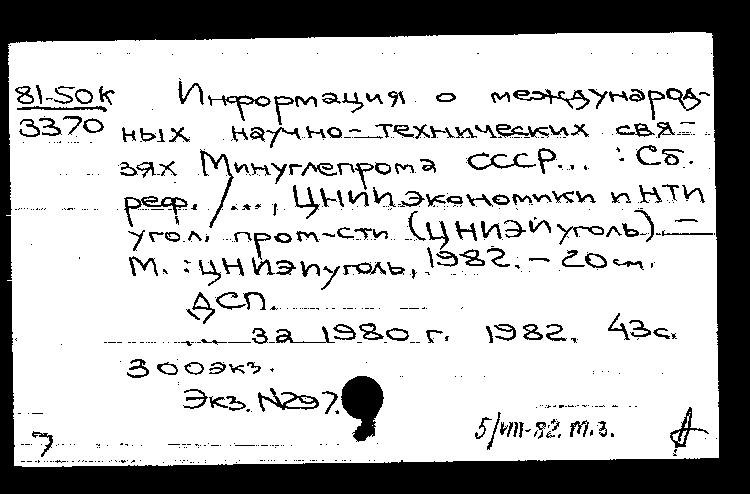 81-50К Информация о международ-
3370 ных научно-технических свя-
зях Минуглепрома СССР... : Сб.
реф. /..., ЦНИИ экономики и НТИ
угол. пром-сти (ЦНИЭИуголь). –
М. : ЦНИЭИуголь, 1982. – 20 см.
ДСП.
... за 1980 г. 1982. 43 с.
300 экз.
Экз. N297.
5/VIII-82. т.з.